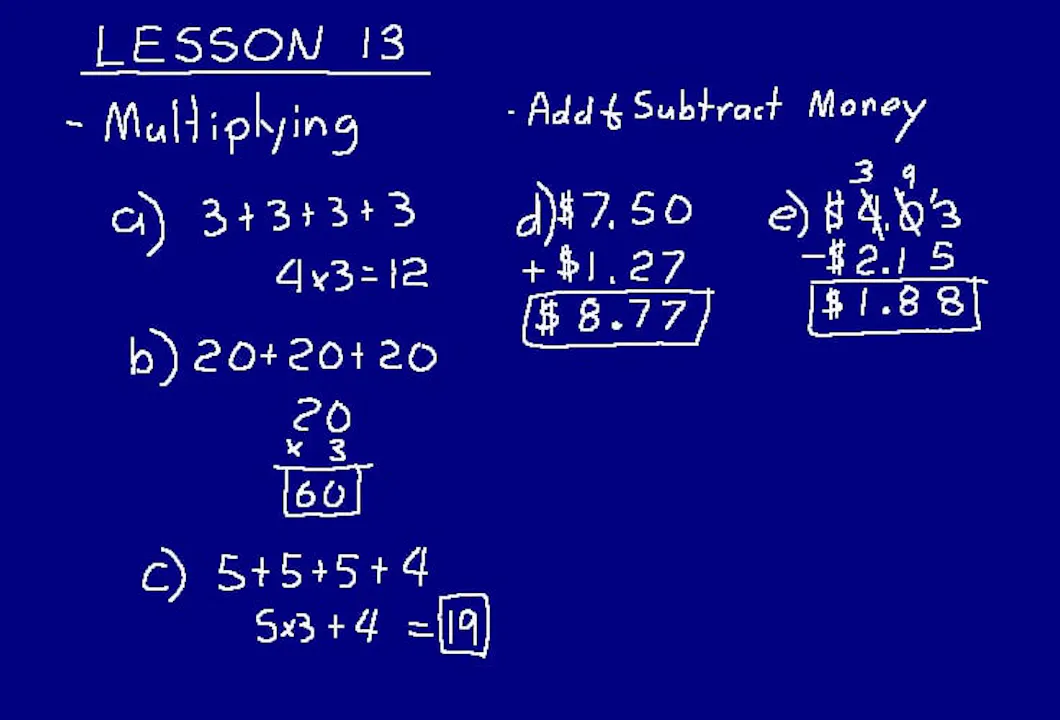 LESSON 13
- Multiplying
a) 3 + 3 + 3 + 3
4 x 3 = 12
b) 20 + 20 + 20
20
x 3
60
c) 5 + 5 + 5 + 4
5 x 3 + 4 = 19
· Add & Subtract Money
d) $7.50
+ $1.27
$8.77
3 9
e) $4.0'3
- $2.15
$1.88